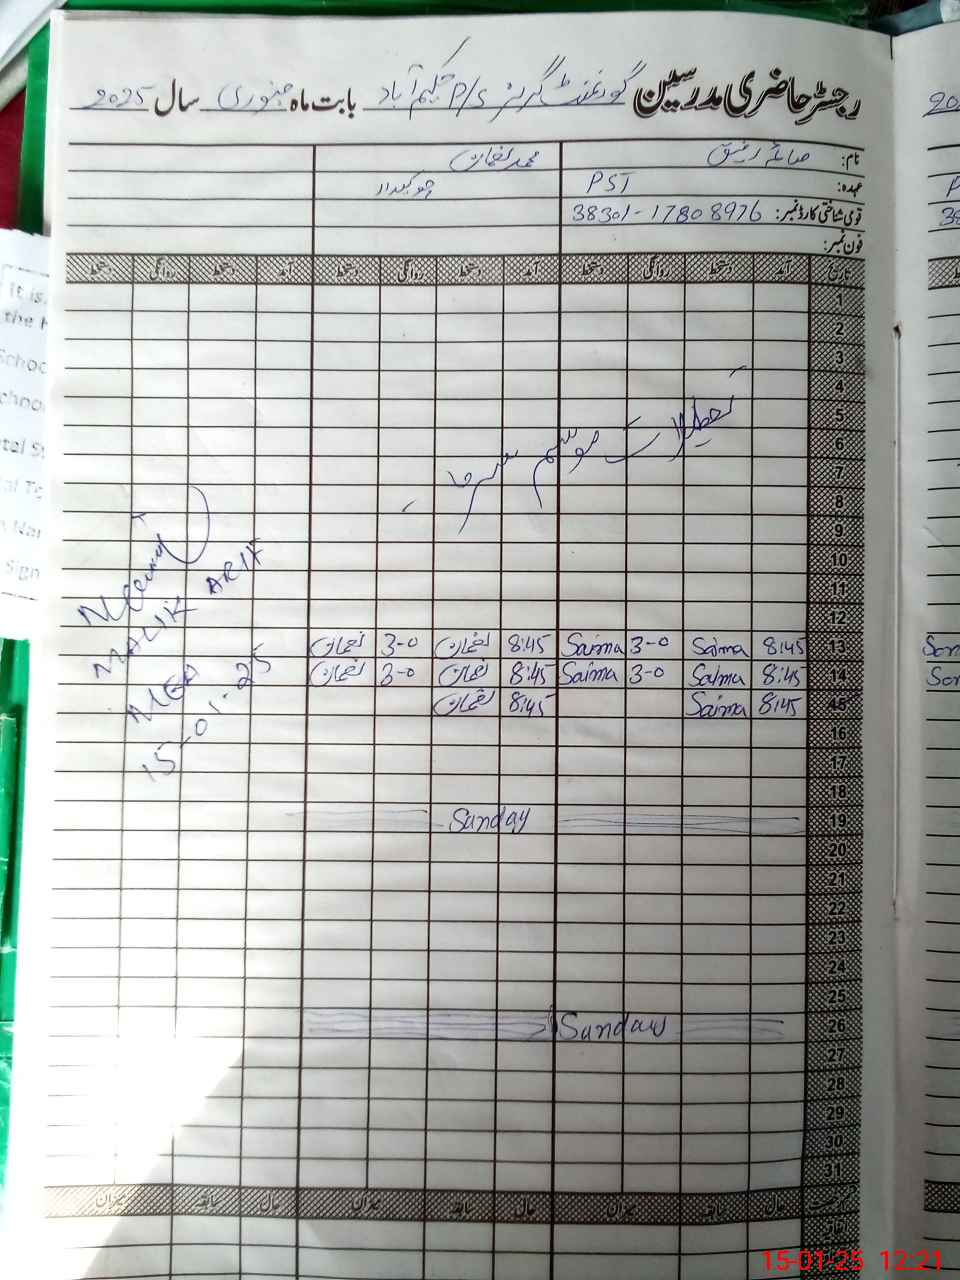 رجسٹر حاضری مدرسین گورنمنٹ گرلز P/S حکیم آباد بابت ماہ جنوری سال 2025
نام: صائمہ رفیق محمد نعمان
عہدہ: PST چوکیدار
قومی شناختی کارڈ نمبر: 38301-1780 8976
فون نمبر:
تاریخ آمد دستخط روانگی دستخط آمد دستخط روانگی دستخط آمد دستخط روانگی دستخط
1
2
3
4
5
تعطیلات موسم سرما
6
7
8
9
10
11
12
13 8:45 Saima 3-0 Saima 8:45 نعمان 3-0 نعمان
14 8:45 Saima 3-0 Saima 8:45 نعمان 3-0 نعمان
15 8:45 Saima 8:45 نعمان
16
17
18
19 Sunday
20
21
22
23
24
25
26 Sunday
27
28
29
30
31
حال سابقہ میزان حال سابقہ میزان حال سابقہ میزان
MALIK ARIF
MEA
15-01-25
It is
the
Schoo
tal
Nam
Sign
15-01-25 12:21